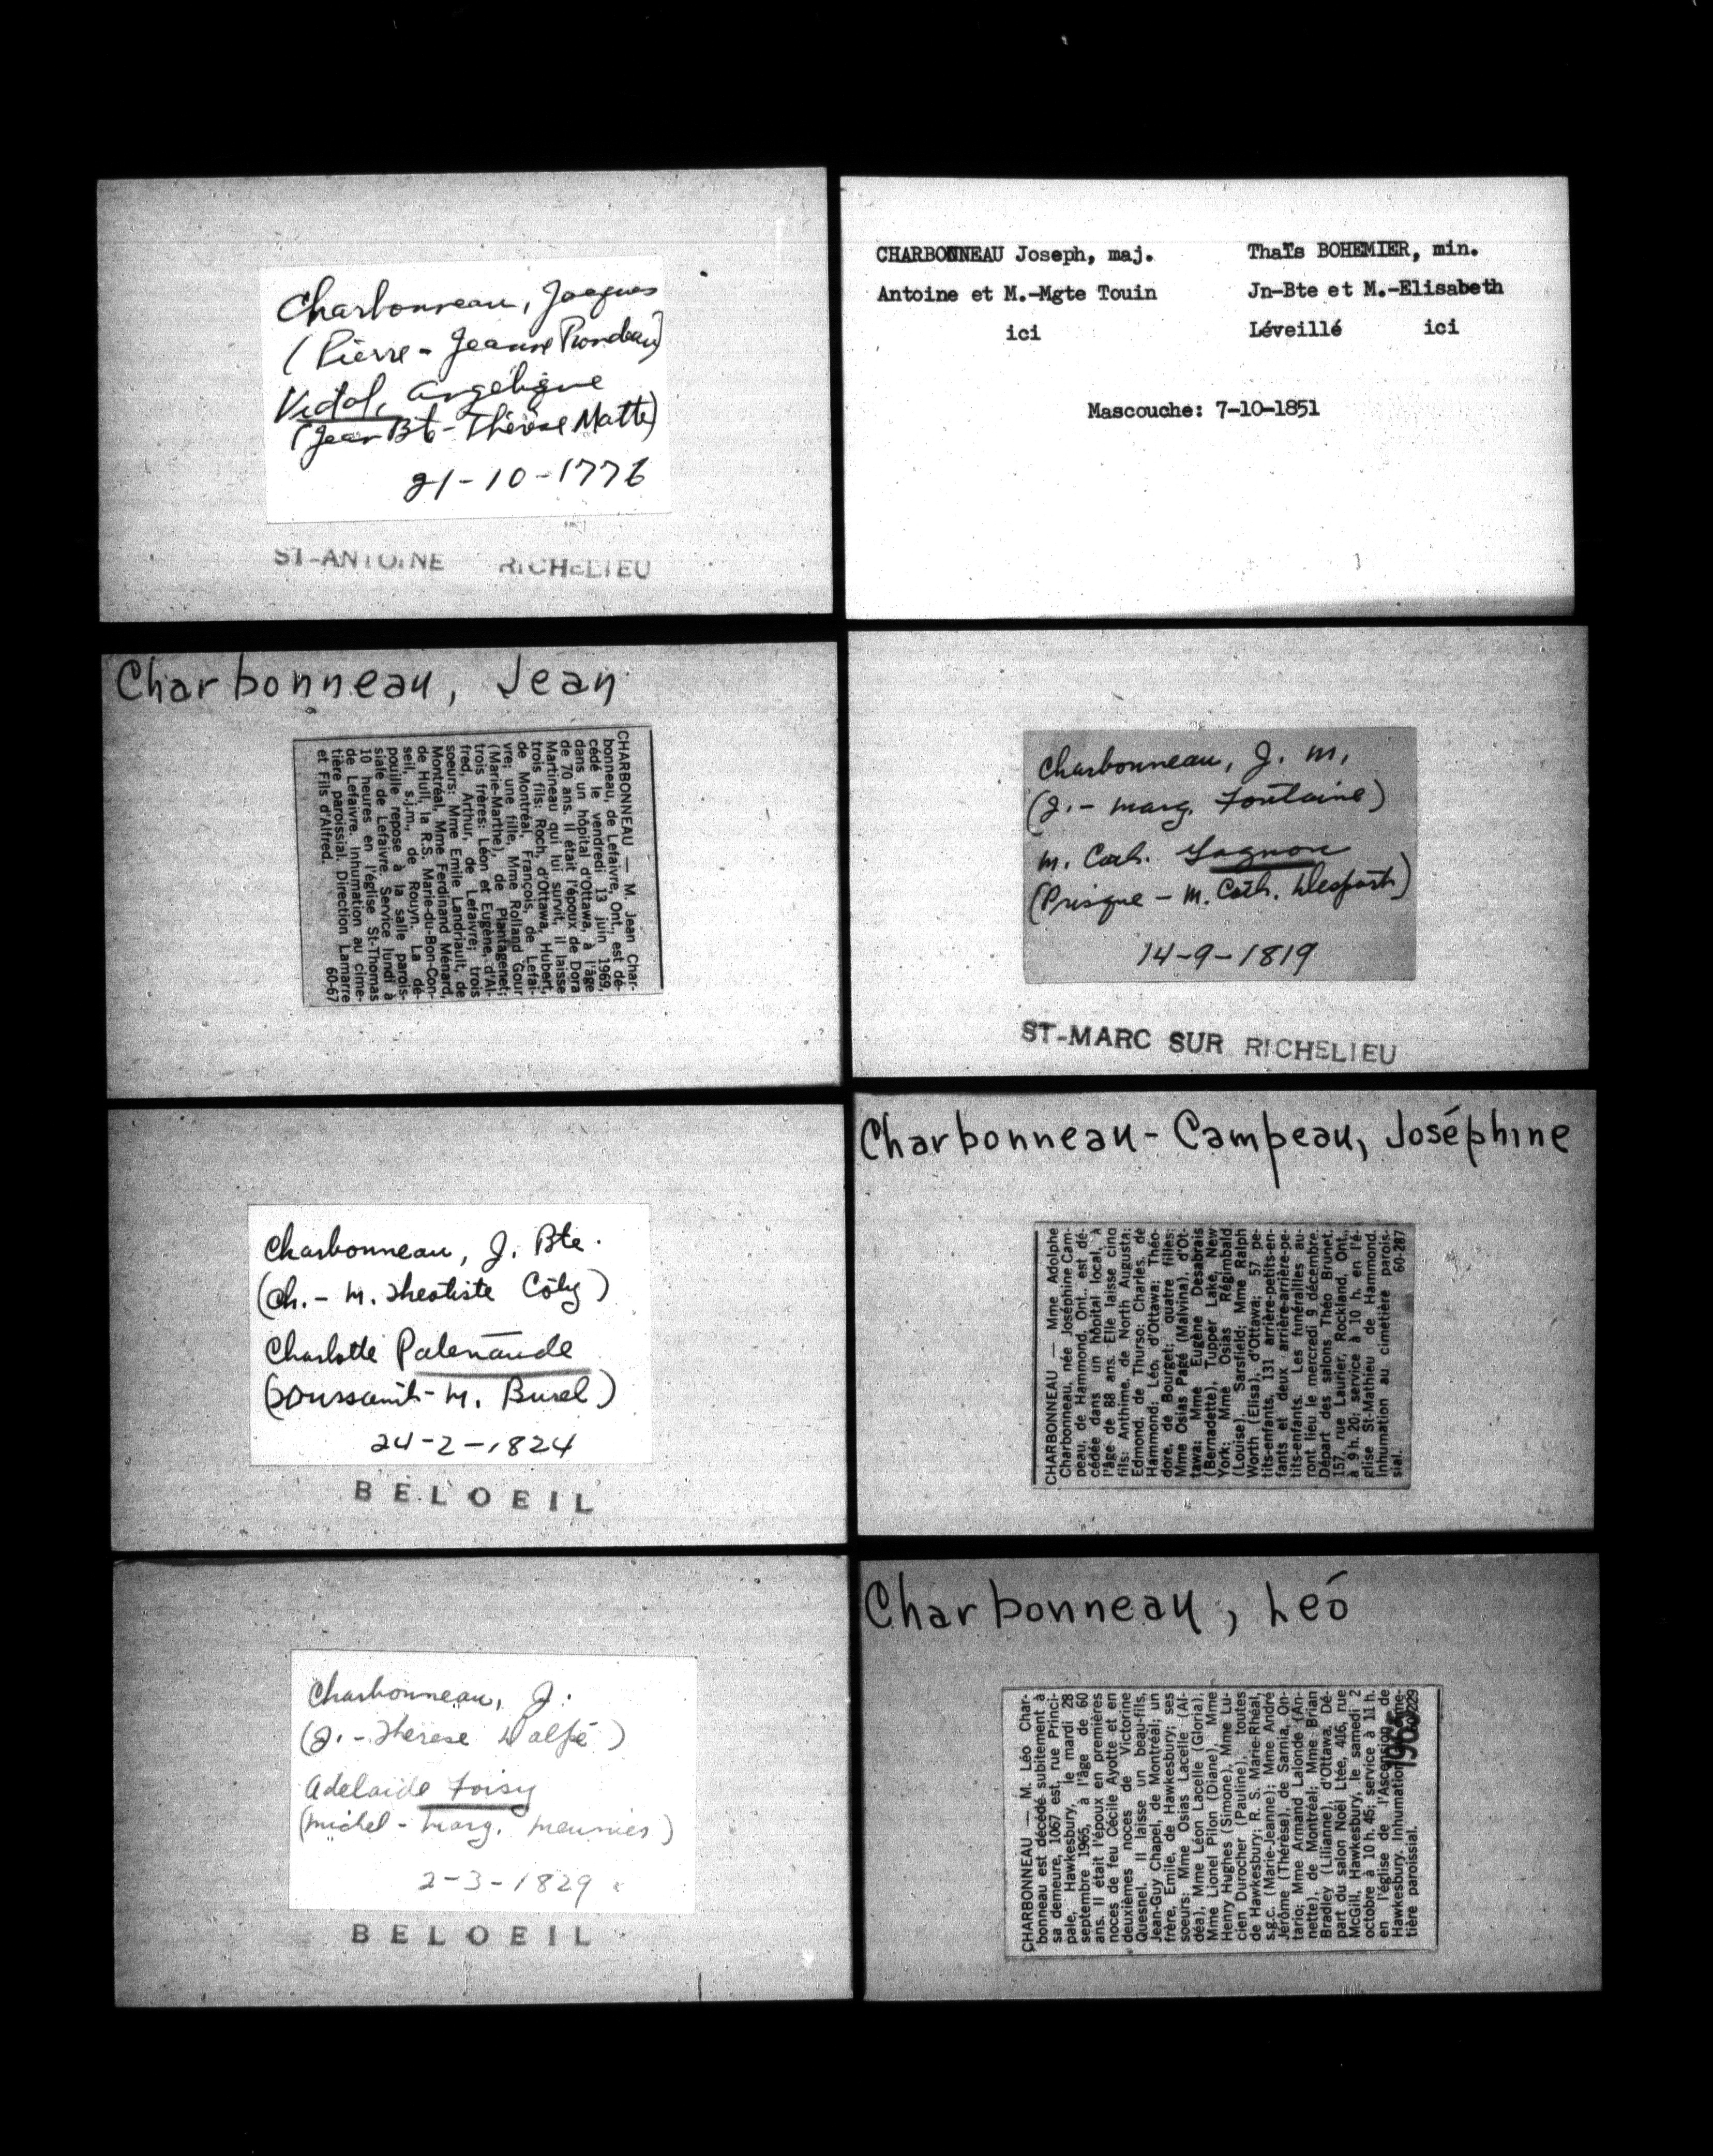 Charbonneau, Jacques
(Pierre - Jeanne Rondeau)
Vidal, Angélique
(Jean Bte - Thérèse Matte)
21-10-1776
ST-ANTOINE RICHELIEU
CHARBONNEAU Joseph, maj. Thaïs BOHEMIER, min.
Antoine et M.-Mgte Touin Jn-Bte et M.-Elisabeth
ici Léveillé ici
Mascouche: 7-10-1851
Charbonneau, Jean
CHARBONNEAU — M. Jean Char-
bonneau, de Lefaivre, Ont., est dé-
cédé le vendredi 13 juin 1969,
dans un hôpital d'Ottawa, à l'âge
de 70 ans. Il était l'époux de Dora
Martineau qui lui survit, il laisse
trois fils: Roch, d'Ottawa, Hubert,
de Montréal, François, de Lefai-
vre; une fille, Mme Rolland Gour
(Marie-Marthe), de Plantagenet;
trois frères: Léon et Eugène, d'Al-
fred, Arthur, de Lefaivre; trois
soeurs: Mme Emile Landriault, de
Montréal, Mme Ferdinand Ménard,
de Hull, la R.S. Marie-du-Bon-Con-
seil, s.j.m., de Rouyn. La dé-
pouille repose à la salle parois-
siale de Lefaivre. Service lundi à
10 heures en l'église St-Thomas
de Lefaivre. Inhumation au cime-
tière paroissial. Direction Lamarre
et Fils d'Alfred. 60-67
Charbonneau, J. M.
(J. - Marg. Fontaine)
M. Cath. Gagnon
(Prisque - M. Cath. Desparts)
14-9-1819
ST-MARC SUR RICHELIEU
Charbonneau, J. Bte.
(Ch. - M. Theotiste Côty)
Charlotte Patenaude
(Toussaint - M. Burel)
24-2-1824
BELOEIL
Charbonneau-Campeau, Joséphine
CHARBONNEAU — Mme Adolphe
Charbonneau, née Joséphine Cam-
peau, de Hammond, Ont., est dé-
cédée dans un hôpital local, à
l'âge de 88 ans. Elle laisse cinq
fils: Anthime, de North Augusta;
Edmond, de Thurso; Charles, de
Hammond; Léo, d'Ottawa; Théo-
dore, de Bourget; quatre filles:
Mme Osias Pagé (Malvina), d'Ot-
tawa; Mme Eugène Desabrais
(Bernadette), Tupper Lake, New
York; Mme Osias Régimbald
(Louise), Sarsfield; Mme Ralph
Worth (Elisa), d'Ottawa; 57 pe-
tits-enfants, 131 arrière-petits-en-
fants et deux arrière-arrière-pe-
tits-enfants. Les funérailles au-
ront lieu le mercredi 9 décembre.
Départ des salons Théo Brunet,
157, rue Laurier, Rockland, Ont.,
à 9 h. 20; service à 10 h. en l'é-
glise St-Mathieu de Hammond.
Inhumation au cimetière parois-
sial. 60-287
Charbonneau, J.
(J. - Thérèse Dalpé)
Adelaïde Foisy
(Michel - Marg. Meunier)
2-3-1829
BELOEIL
Charbonneau, Léo
CHARBONNEAU — M. Léo Char-
bonneau est décédé subitement à
sa demeure, 1067 est, rue Princi-
pale, Hawkesbury, le mardi 28
septembre 1965, à l'âge de 60
ans. Il était l'époux en premières
noces de feu Cécile Ayotte et en
deuxièmes noces de Victorine
Quesnel. Il laisse un beau-fils,
Jean-Guy Chapel, de Montréal; un
frère, Emile, de Hawkesbury; ses
soeurs: Mme Osias Lacelle (Al-
déa), Mme Léon Lacelle (Gloria),
Mme Lionel Pilon (Diane), Mme
Henry Hughes (Simone), Mme Lu-
cien Durocher (Pauline), toutes
de Hawkesbury; R. S. Marie-Rhéal,
s.g.c. (Marie-Jeanne); Mme André
Jérôme (Thérèse), de Sarnia, On-
tario; Mme Armand Lalonde (An-
nette), de Montréal; Mme Brian
Bradley (Lilianne), d'Ottawa. Dé-
part du salon Noël Ltée, 406, rue
McGill, Hawkesbury, le samedi 2
octobre à 10 h. 45; service à 11 h.
en l'église de l'Ascension de
Hawkesbury. Inhumation cime-
tière paroissial. 229
1965